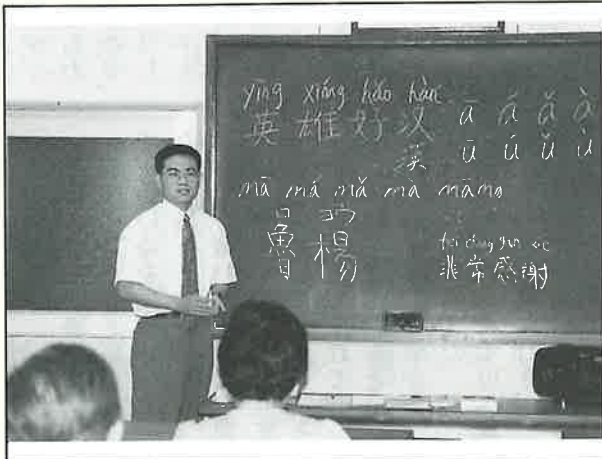 yīng xióng hǎo hàn
英雄好汉
漢
ā á ǎ à
ū ú ǔ ù
mā má mǎ mà māma
魯 楊
fēi cháng gǎn xiè
非常感謝